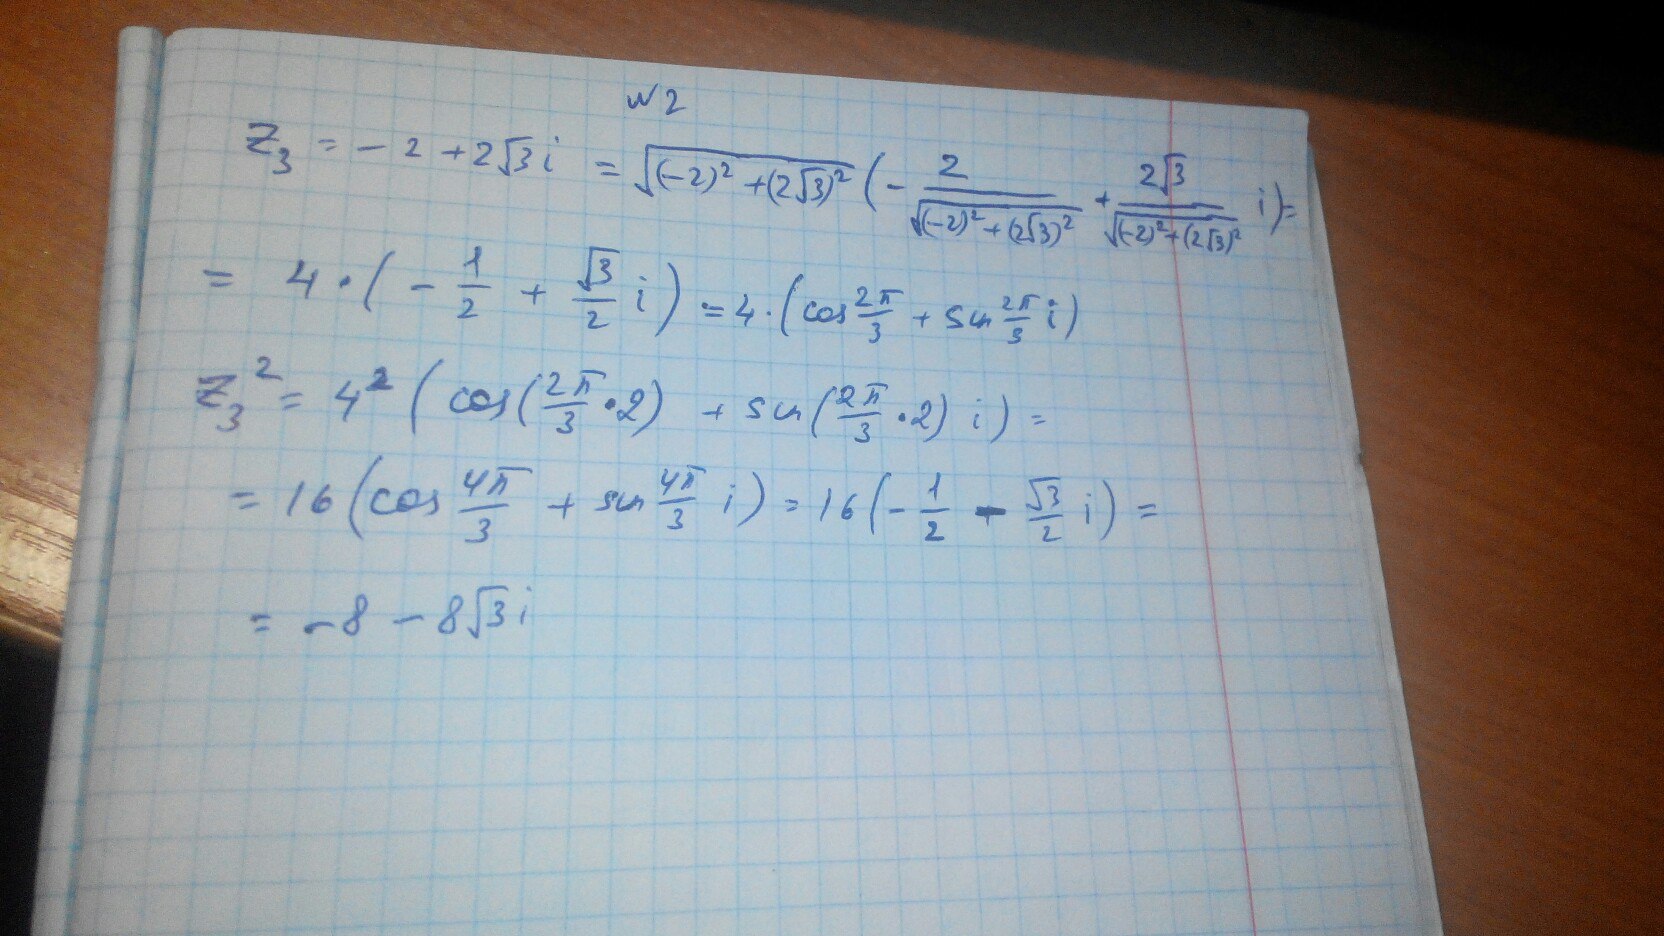 №2
Z₃ = -2 + 2√3 i = √((-2)² + (2√3)²) (- 2/√((-2)² + (2√3)²) + 2√3/√((-2)² + (2√3)²) i) =
= 4 · (- 1/2 + √3/2 i) = 4 · (cos 2π/3 + sin 2π/3 i)
Z₃² = 4² (cos(2π/3 · 2) + sin(2π/3 · 2) i) =
= 16 (cos 4π/3 + sin 4π/3 i) = 16 (- 1/2 - √3/2 i) =
= -8 - 8√3 i